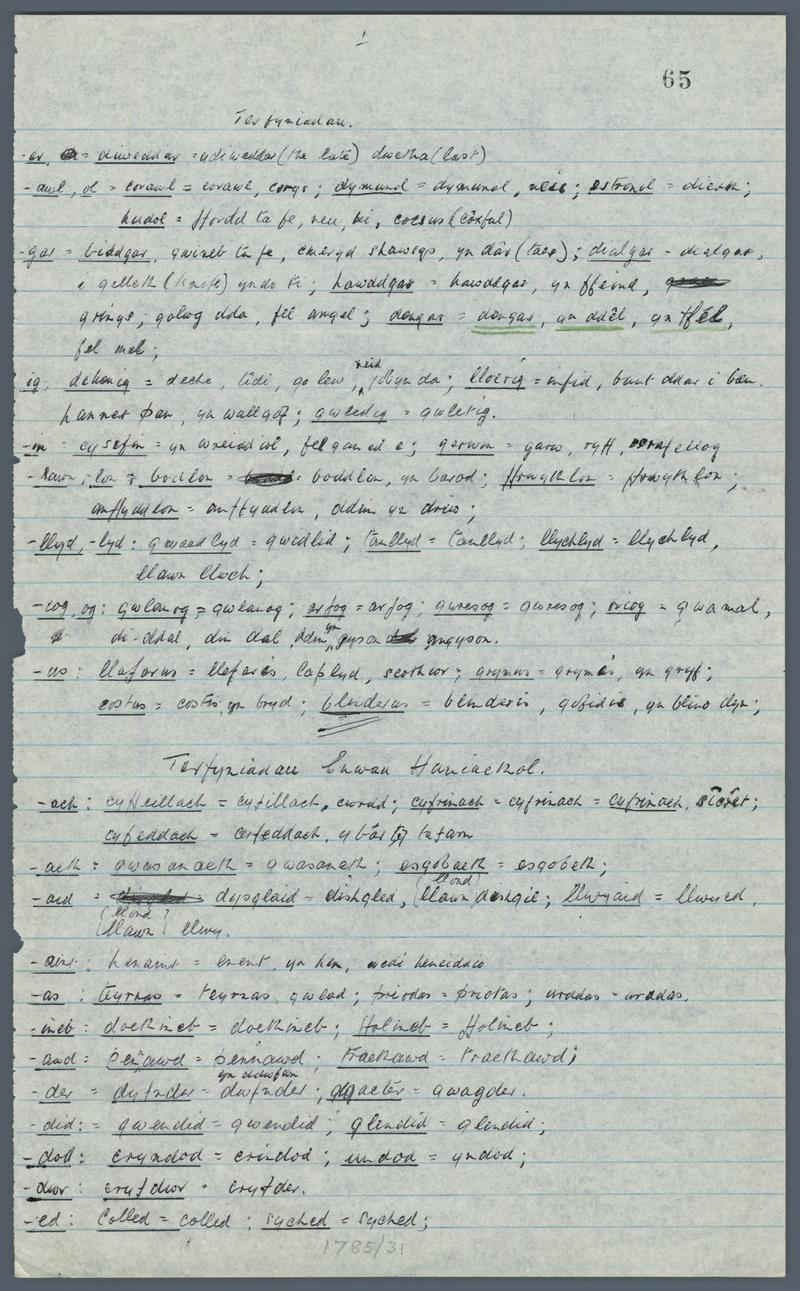 65
Terfyniadau.
-ar, = diweddar = ydiweddar (the late) dwetha (last)
-awl, ol = corawl = corawl, corys; dymunol = dymunol, neis; estronol = dierth;
hudol = ffordd ta fe, neu, hi, coesus (coxful)
-gar = budgar, gwineb ta fe, cmeryd shawegs, yn dâr (taer); dialgar - dialgar,
i gilleth (knife) yndo ti; hawddgar = hawddgar, yn ffeind,
gring; golwg dda, fel angel; dengar = dengar, yn ddêl, yn ffêl,
fel mel;
ig, deheuig = deche, tidi, go lew, reit da; lloerig = bant ddar i ben.
hanner pan, yn wallgo; gwledig = gwletig.
-in = cysefin = fel ganed e; gerwin = garw, ryff,
-lawn, -lon = bodlon = boddlon, yn barod; ffrwythlon = ffrwythlon;
anffyddlon = anffyddlon, ddim yn driw;
-llyd, -lyd: gwaedlyd = gwedlid; tanllyd = tanllyd; llychlyd = llychlyd,
llawn llwch;
-iog, og: gwlanog = gwlanog; arfog = arfog; gwresog = gwresog; oriog = gwamal,
di-ddal, din dal, ddim yn gyson anghyson.
-us: llafarus = llefaris, laplyd, grymus = grymis, yn gryf;
costus = costis, yn bryd; blinderus = blinderis, gofidis, yn blino dyn;
Terfyniadau Enwau Haniaethol.
-ach: cyfeillach = cyfillach, cwrdd; cyfrinach = cyfrinach = cyfrinach, sicret;
cyfeddach = cerfeddach, y bârti tafarn
-aeth = gwasanaeth = gwasaneth; esgobaeth = esgobeth;
llond
-aid = dysglaid = dishgled, (llawn) dishgil; llwyaid = llwyed,
(llond)
(llawn) llwy.
-aint: henaint = enent, yn hen, wedi heneiddio
-as: teyrnas = teyrnas, gwlad; priodas = priotas; urddas = urddas.
-ineb: doethineb = doethineb; ffolineb = ffolineb;
-awd: pennawd = pennawd; traethawd = traethawd;
yn ddwfwn
-der = dyfnder = dwfnder; gwacter = gwagder.
-did: = gwendid = gwendid; glendid = glendid;
-dod: cryndod = crindod; undod = yndod;
-dwr: cryfdwr = cryfder.
-ed: colled = colled; syched = syched;
1785/31